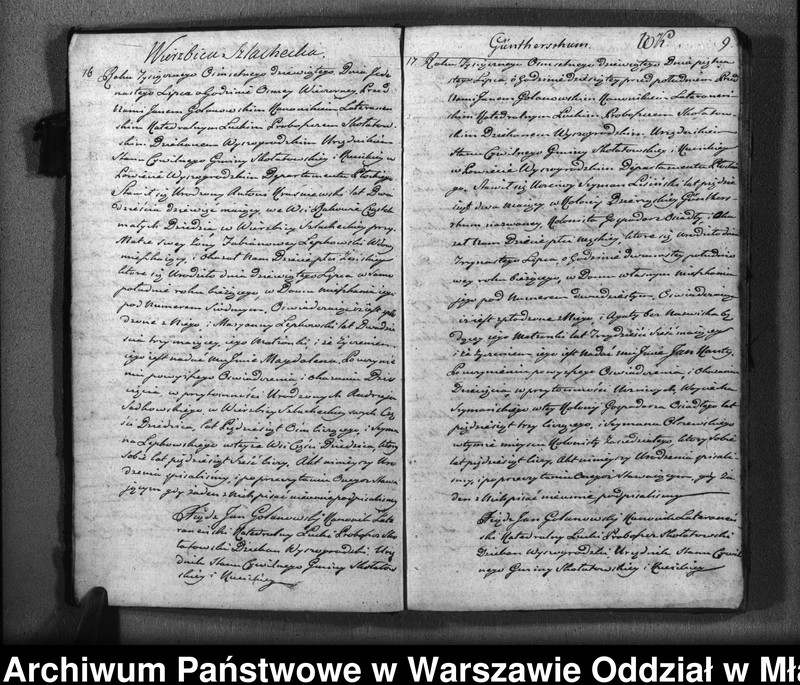 Wierzbica Szlachecka.
16 Roku Tysiącznego Osmsetnego dziewiątego, Dnia Jede-
nastego Lipca o Godzinie Osmey Wieczorney, Przed
Nami Janem Golanowskim Kanonikiem Latereneń-
skim Katedralnym Luckim Proboszczem Skołatow-
skim Dziekanem Wyszogrodzkim Urzędnikiem
Stanu Cywilnego Gminy Skołatowskiey i
w Powiecie Wyszogrodzkim Departamencie Płockim
Stawił się Urodzony Antoni Krasniewski lat Dwa-
dzieścia dziewięć maiący, we Wsi
małych Dziedzic w Wierzbicy Szlacheckiey przy
Matce swey żony Łępkowski
mieszkaiący, i okazał Nam Dziecię płci Żeńskiey
które się Urodziło dnia Dziewiątego Lipca
południe roku bieżącego, w Domu mieszkania iego
pod Numerem Siodmym, Oświadczaiąc iż iest spło-
dzone z Niego i Maryanny Łępkowski lat Dwadzie-
ścia trzy maiącey, iego Małżonki, i że życzeniem
iego iest nadać mu Jmie Magdalena. Po uczynie-
niu powyższego Oświadczenia i okazaniu Dzie-
cięcia, w przytomności Urodzonych Andrzeja
Sadkowskiego, w Wierzbicy Szlacheckiey swych Czę-
ści Dziedzica, lat Pięćdziesiąt Osm liczącego, i Szymo-
na Łępkowskiego w teyże Wsi Części Dziedzica, który
sobie lat pięćdziesiąt Sześć liczy, Akt ninieyszy Uro-
dzenia spisaliśmy, i po przeczytaniu Onegoż Stawa-
iącym gdy żaden z Nich pisać nie umie podpisaliśmy
Xiądz Jan Golanowski Kanonik Late-
raneński Katedralny Lucki Proboszcz Sko-
łatowski Dziekan Wyszogrodzki, Urzę-
dnik Stanu Cywilnego Gminy Skołatow-
skiey i
Güntherschum. 9
17 Roku Tysiącznego Osmsetnego dziewiątego Dnia piętna-
stego Lipca, o Godzinie Dziesiątey przed południem Przed
Nami Janem Golanowskim Kanonikiem Lateraneń-
skim Katedralnym Luckim Proboszczem Skołatow-
skim Dziekanem Wyszogrodzkim Urzędnikiem
Stanu Cywilnego Gminy Skołatowskiey i
w Powiecie Wyszogrodzkim Departamencie Płockie-
go, Stawił się Uczciwy Szyman lat pięćdzie-
siąt dwa maiący w Kolonij Günthers-
chum nazwaney, Kolonista Gospodarz Osiadły, i Oka-
zał Nam Dziecię płci męzkiey, które się Urodziło dnia
Trzynastego Lipca, o Godzinie dwunastey, południo-
wey roku bieżącego, w Domu własnym mieszkania
iego pod Numerem dwudziestym, Oświadczaiąc
iż iest spłodzone z Niego, i Agaty bez Nazwiska bę-
dącey iego Małżonki lat Trzydzieści Sześć maiącey
i że życzeniem iego iest Nadać mu Jmie Jan
Po uczynieniu powyższego Oświadczenia, i Okazaniu
Dziecięcia, w przytomności Uczciwych, Woyciecha
Szymańskiego w tey Kolonij Gospodarza Osiadłego lat
pięćdziesiąt trzy liczącego, i Szymana Olszewskiego
w tymże mieyscu Kolonisty Zasiedzałego, który sobie
lat pięćdziesiąt liczy, Akt ninieyszy Urodzenia spisali-
śmy, i po przeczytaniu Onegoż Stawaiącym, gdy ża-
den z Nich pisać nie umie podpisaliśmy
Xiądz Jan Golanowski Kanonik Lateraneń-
ski Katedralny Lucki Proboszcz Skołatowski
Dziekan Wyszogrodzki Urzędnik Stanu Cywil-
nego Gminy Skołatowskiey i
Archiwum Państwowe w Warszawie Oddział w Mła